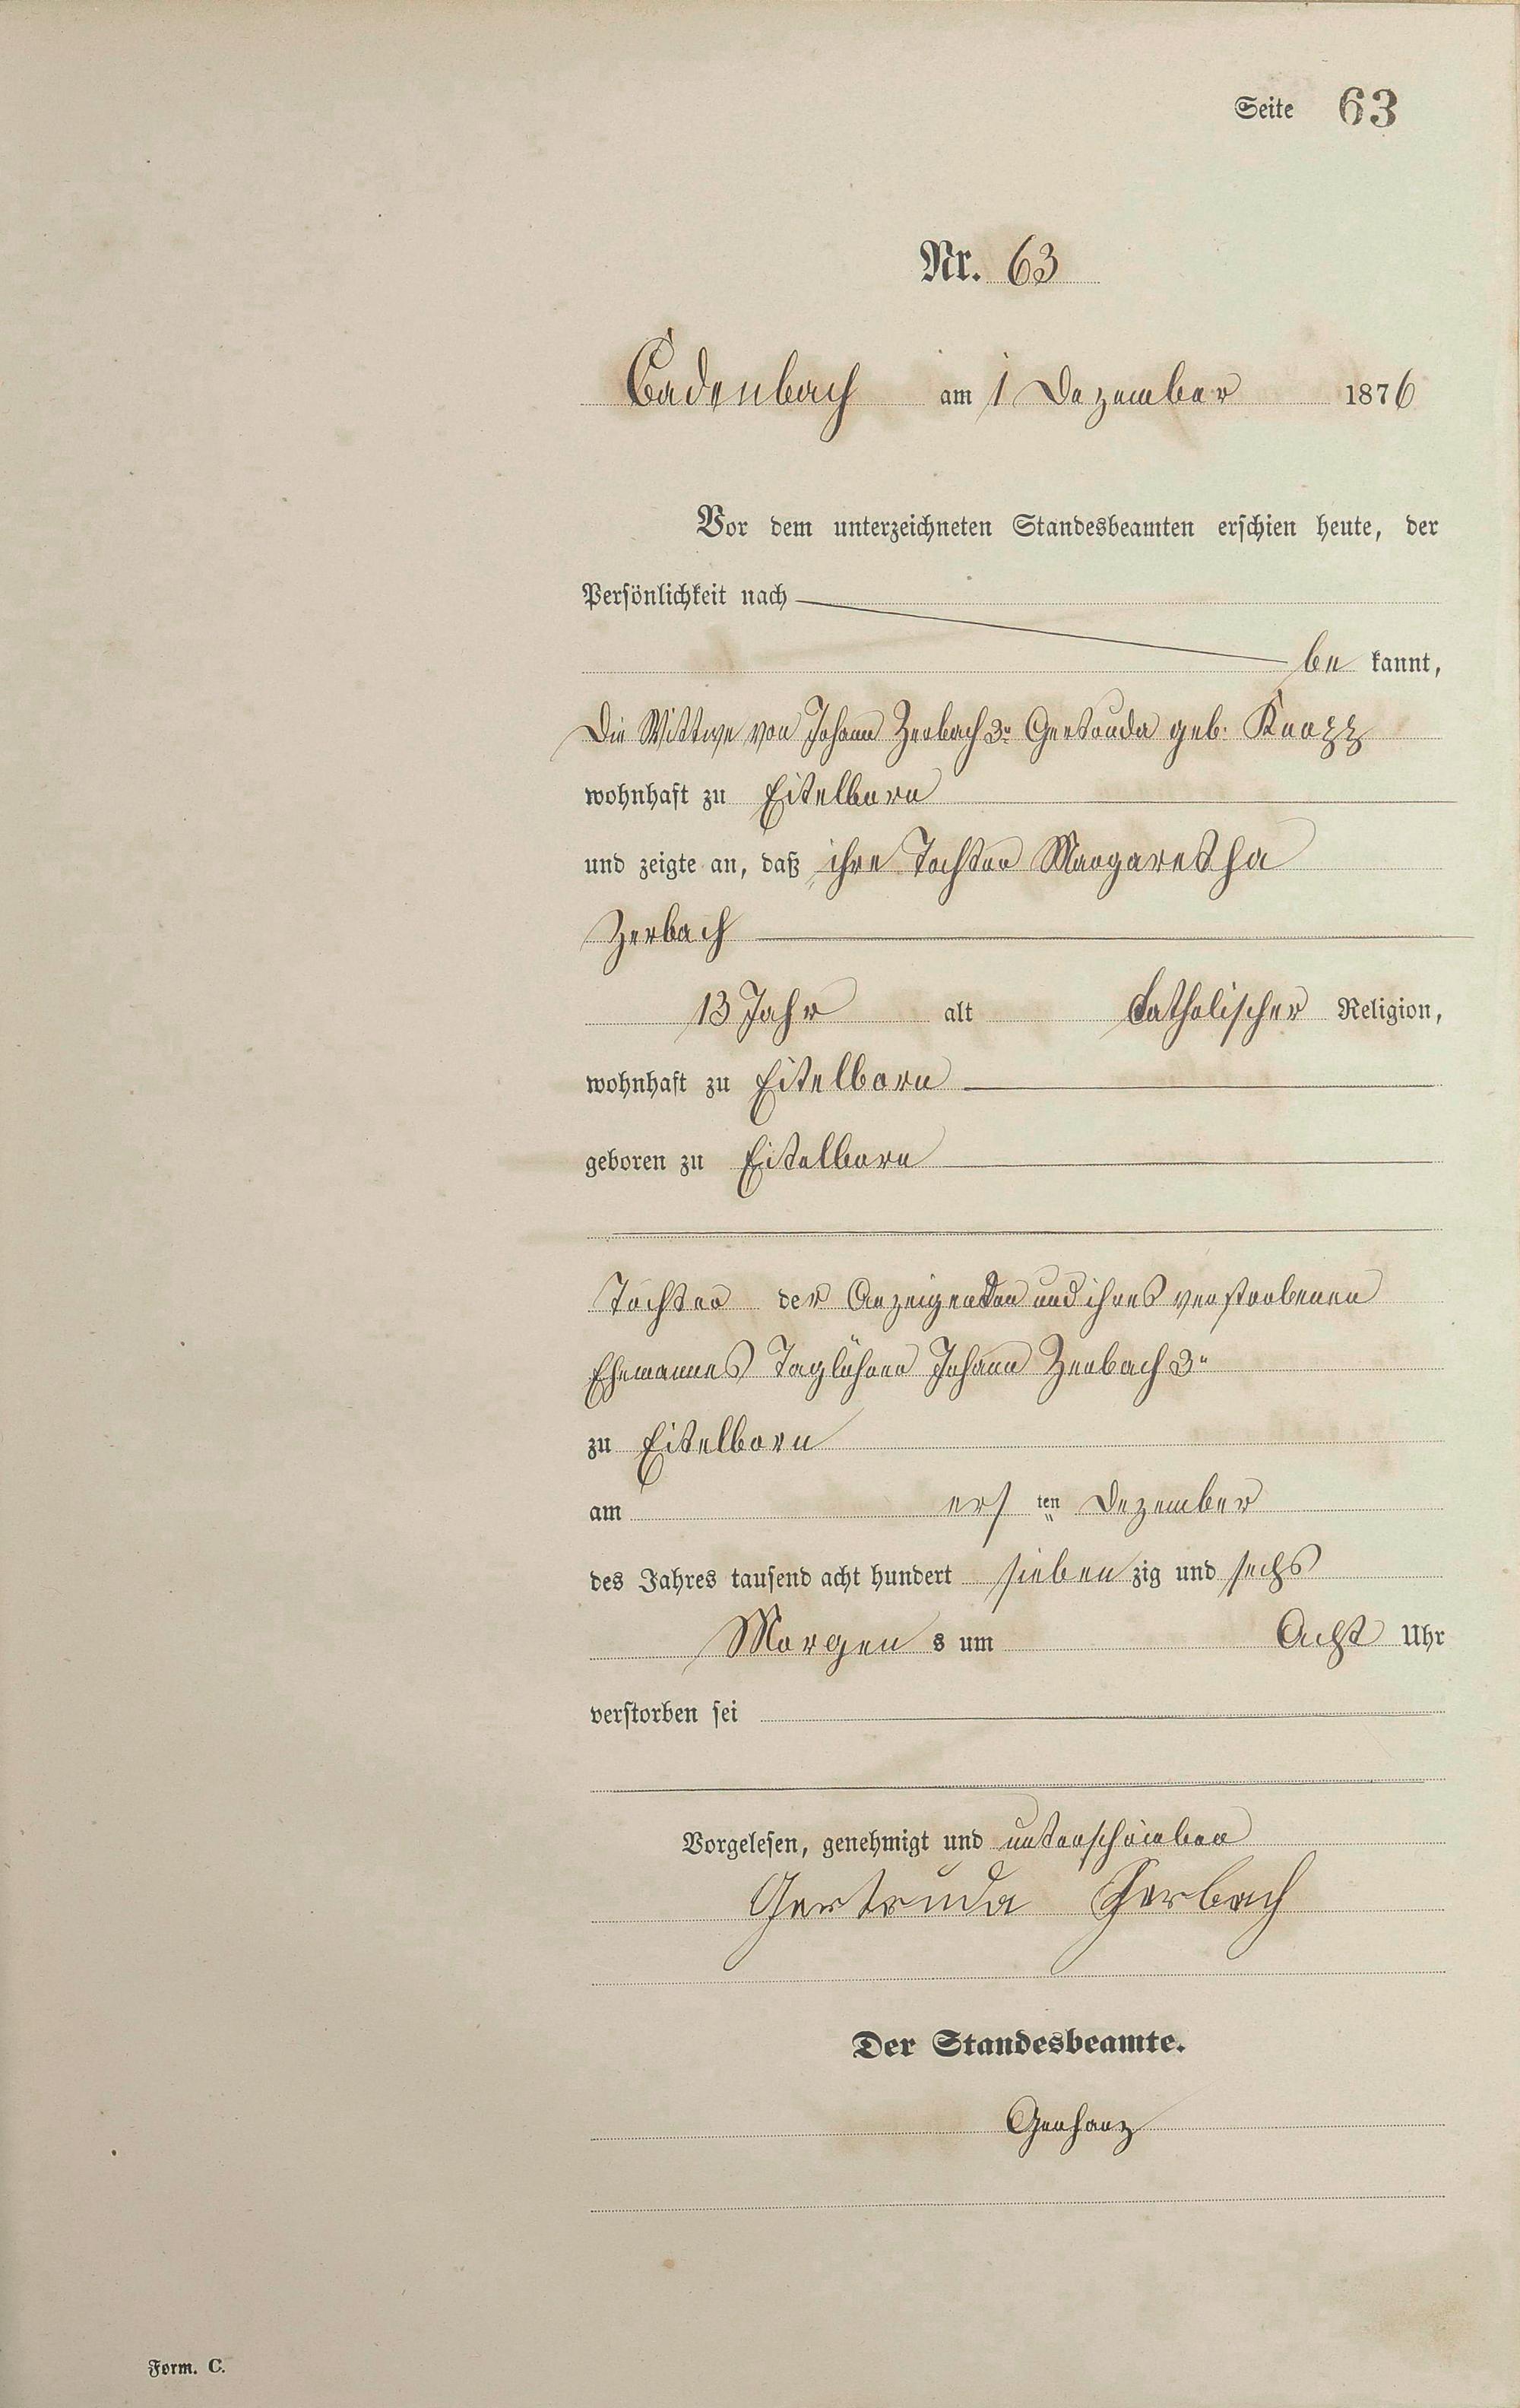 Seite 63
Nr. 63
Cadenbach am 1 Dezember 1876
Vor dem unterzeichneten Standesbeamten erschien heute, der
Persönlichkeit nach
be kannt,
Die Wittwe von Johann Zerbach 3r Gertruda geb. Knopp
wohnhaft zu Eitelborn
und zeigte an, daß ihre Tochter Margaretha
Zerbach
13 Jahr alt Catholischer Religion,
wohnhaft zu Eitelborn
geboren zu Eitelborn
Tochter der Anzeigenden und ihres verstorbenen
Ehemannes Taglöhner Johann Zerbach 3r
zu Eitelborn
am ers ten Dezember
des Jahres tausend acht hundert sieben zig und sechs
Morgen s um Acht Uhr
verstorben sei
Vorgelesen, genehmigt und unterschrieben
Gertruda Zerbach
Der Standesbeamte.
Gerharz
Form. C.